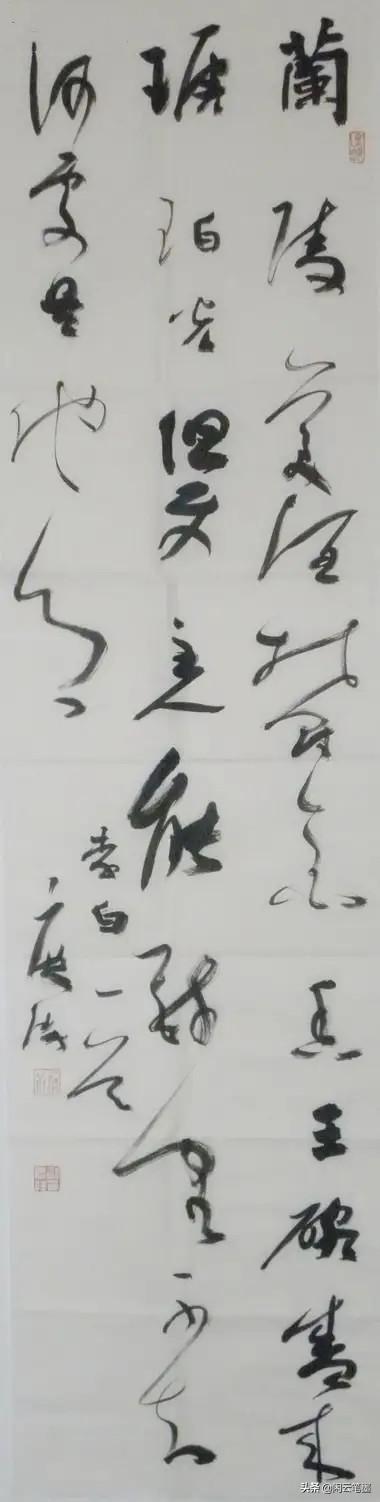 蘭陵美酒鬱金香玉碗盛来
琥珀光但使主人能醉客不知
何處是他鄉
李白一首
头条 @闲云笔